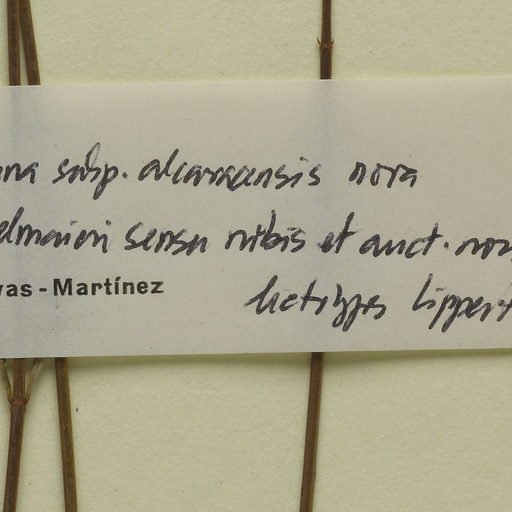 na subsp. alcarracensis nova
elmaieri sensu nobis et auct. non
vas-Martínez
Lectotypus Lippert